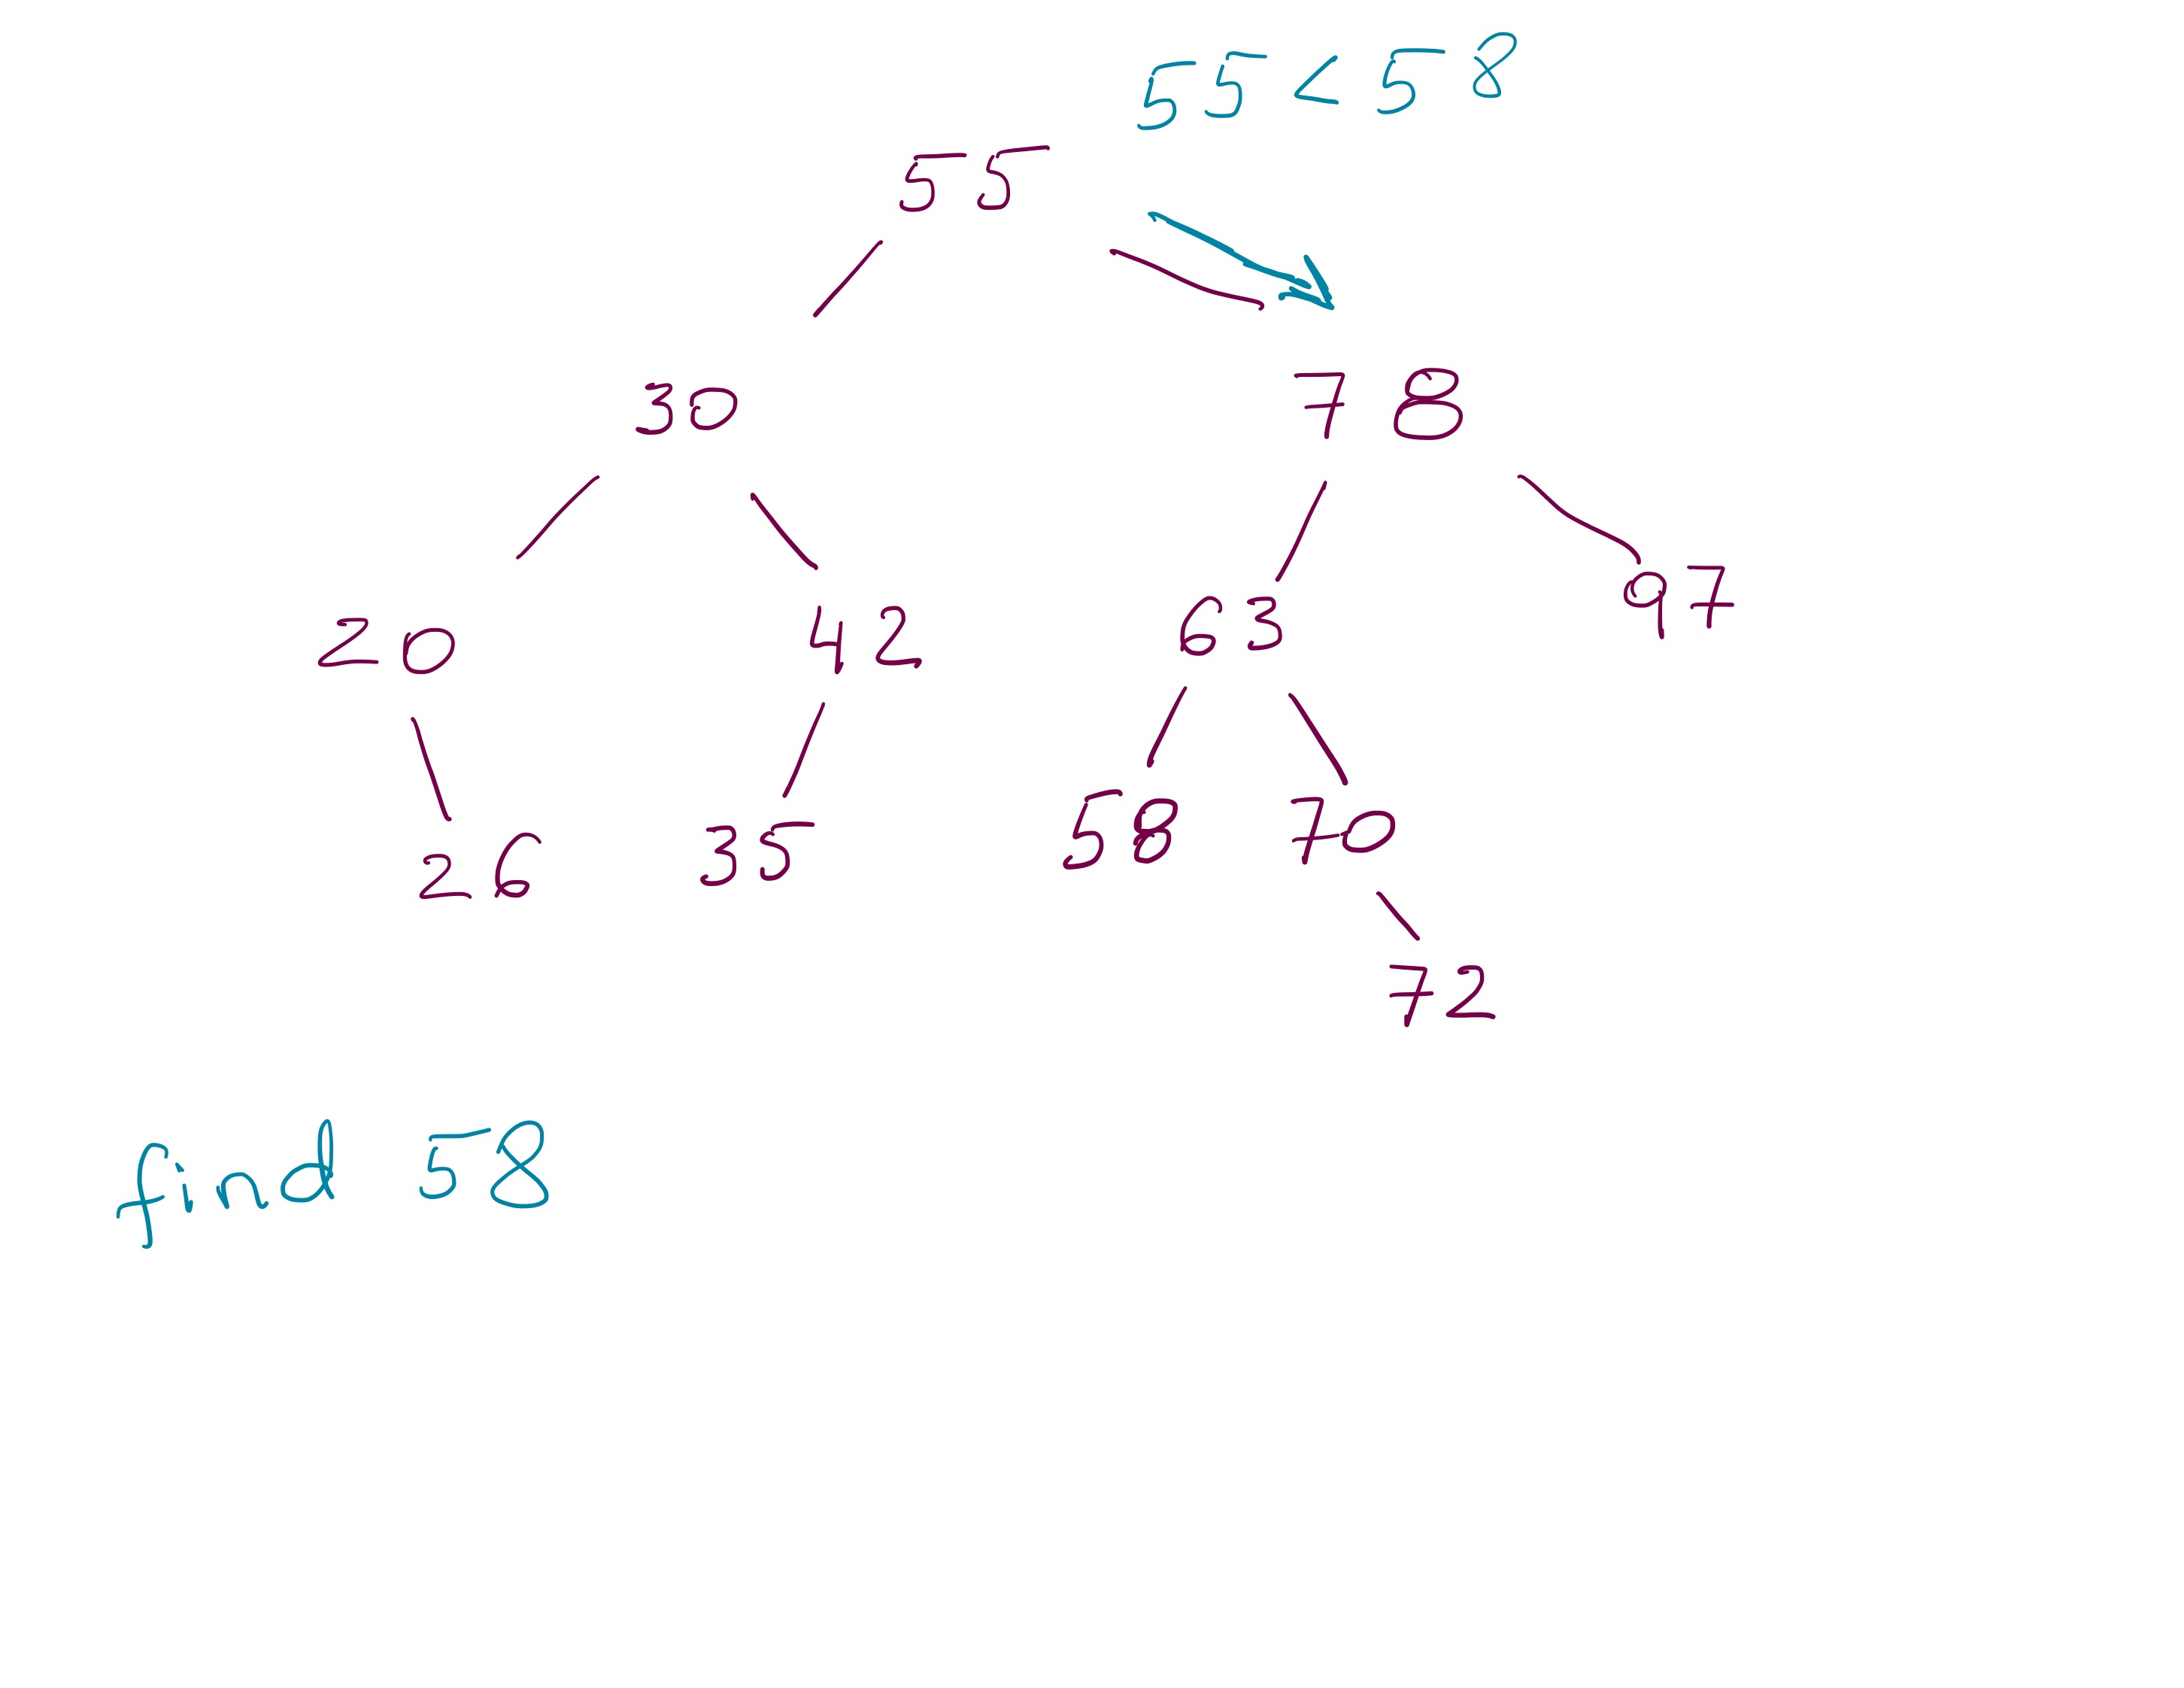 55 < 58
55
30 78
20 42 63 97
26 35 58 70
72
find 58